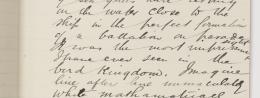 on the water close to the
ship in the perfect formation
of a battalion on parade
It was the most unpre
I have ever seen in the
bird Kingdom. Imagine
line after line
white mathematical